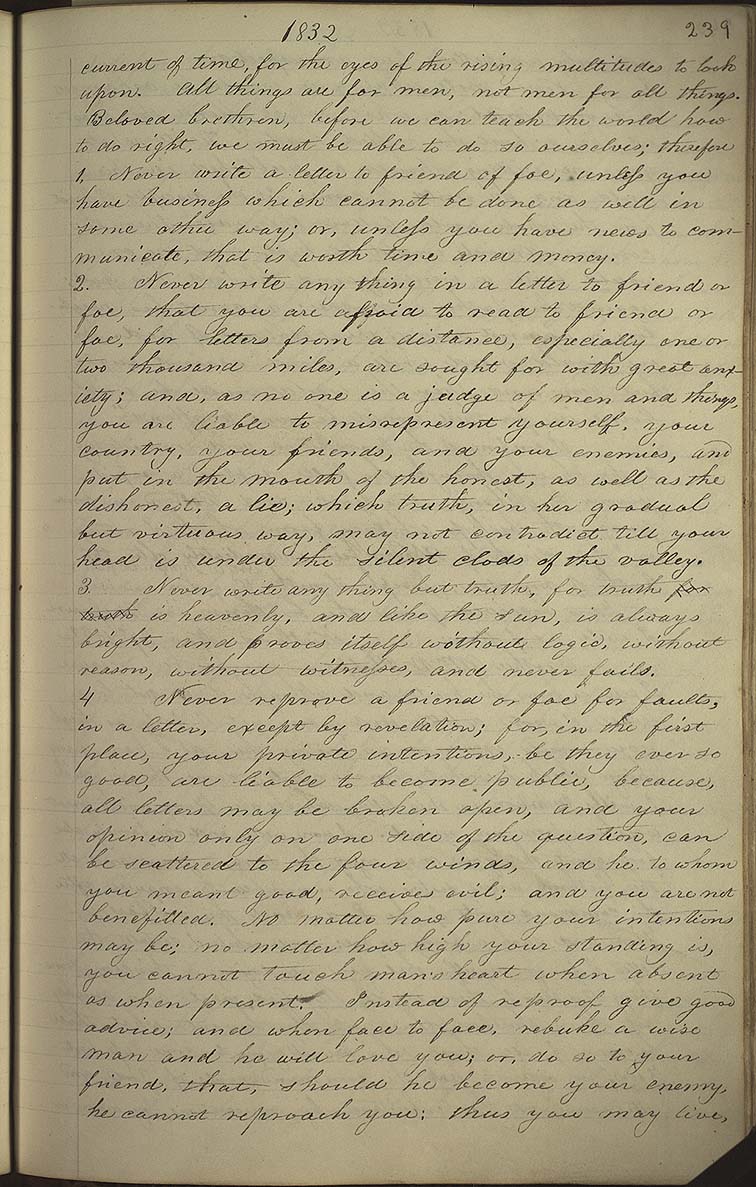 1832
239
current of time, for the eyes of the rising multitudes to look
upon. All things are for men, not men for all things.
Beloved brethren, before we can teach the world how
to do right, we must be able to do so ourselves; therefore
1, Never write a letter to friend of foe, unless you
have business which cannot be done as well in
some other way; or, unless you have news to com-
municate, that is worth time and money.
2. Never write any thing in a letter to friend or
foe, that you are afraid to read to friend or
foe, for letters from a distance, especially one or
two thousand miles, are sought for with great anx-
iety; and, as no one is a judge of men and things,
you are liable to misrepresent yourself, your
country, your friends, and your enemies, and
put in the mouth of the honest, as well as the
dishonest, a lie; which truth, in her gradual
but virtuous way, may not contradict till your
head is under the silent clods of the valley.
3. Never write any thing but truth, for truth for
truth is heavenly, and like the sun, is always
bright, and proves itself without logic, without
reason, without witnesses, and never fails.
4 Never reprove a friend or foe for faults,
in a letter, except by revelation; for, in the first
place, your private intentions, be they ever so
good, are liable to become public, because,
all letters may be broken open, and your
opinion only on one side of the question, can
be scattered to the four winds, and he to whom
you meant good, receives evil; and you are not
benefitted. No matter how pure your intentions
may be; no matter how high your standing is,
you cannot touch man's heart when absent
as when present. Instead of reproof give good
advice; and when face to face, rebuke a wise
man and he will love you; or, do so to your
friend, that, should he become your enemy,
he cannot reproach you: thus you may live,